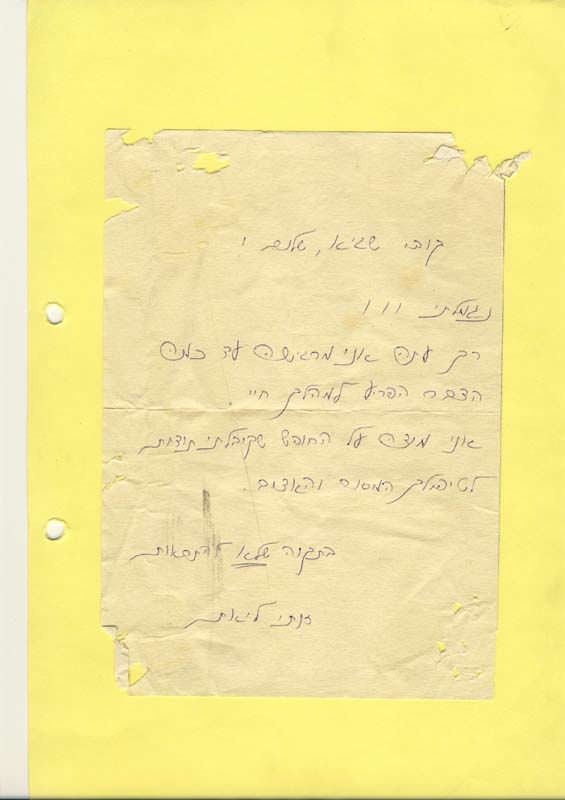 קובי שגיא, שלום !
נגמלתי !!!
רק עתה אני מרגישה עד כמה
הדבר הפריע למהלך חיי.
אני מודה על החופש שקיבלתי תודות
לטיפולך המסור והאוהב.
בתקוה שלא להתראות